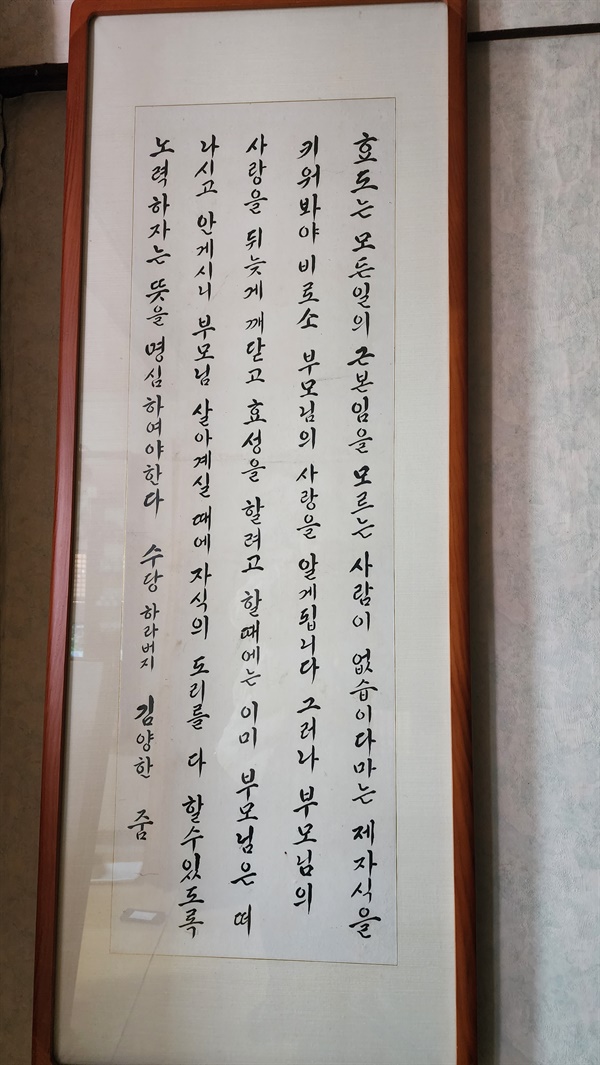 효도는 모든일의 근본임을 모르는 사람이 없습이다마는 제자식을
키워봐야 비로소 부모님의 사랑을 알게됩니다 그러나 부모님의
사랑을 뒤늦게 깨닫고 효성을 할려고 할때에는 이미 부모님은 떠
나시고 안게시니 부모님 살아계실 때에 자식의 도리를 다 할수있도록
노력하자는 뜻을 명심하여야한다 수당 하라버지 김양한 줌